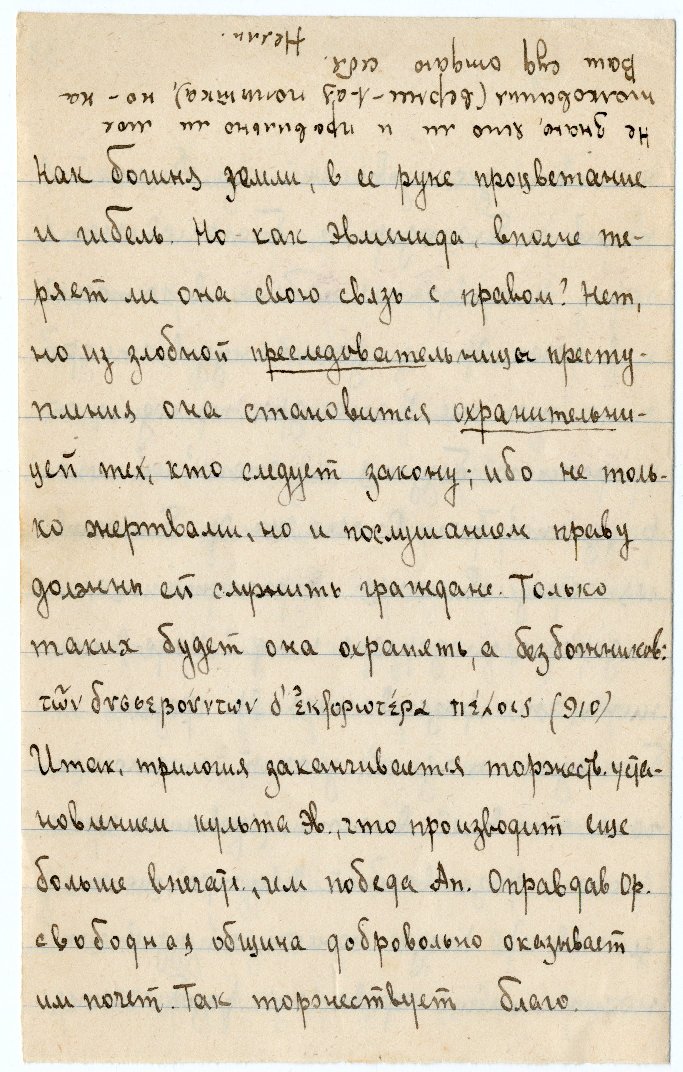 Как богиня земли, в ее руке процветание
и гибель. Но - как Эвменида, вполне те-
ряет ли она свою связь с правом? Нет,
но из злобной преследовательницы престу-
пления она становится охранительни-
цей тех, кто следует закону; ибо не толь-
ко жертвами, но и послушанием праву
должны ей служить граждане. Только
таких будет она охранять, а безбожников:
τῶν δυσσεβούντων δ' ἐκφορωτέρα πέλοις (910)
Итак, трилогия заканчивается торжеств. уста-
новлением культа Эв., что производит еще
больше впечатл., чем победа Ап. Оправдав Ор.
свободная община добровольно оказывает
им почет. Так торжествует благо.
Не знаю, ясно ли и правильно ли мое
толкование (1-ая попытка), но - на
Ваш суд отдаю себя.
Нелли.